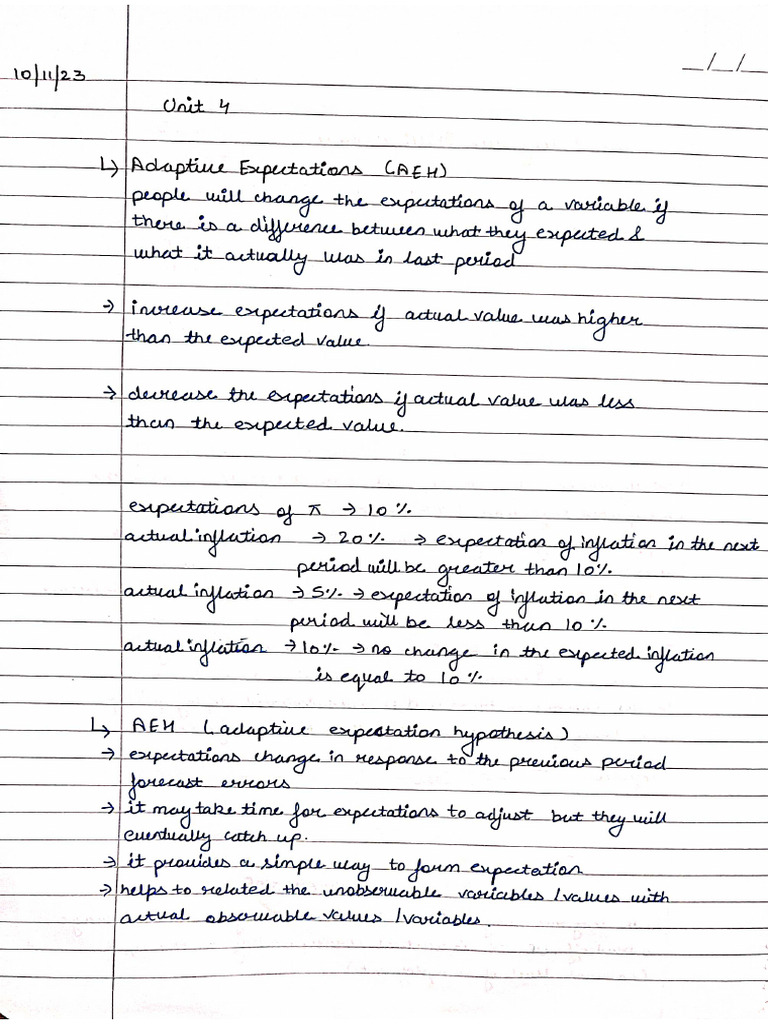 _/_/_
10/11/23
Unit 4
↳ Adaptive Expectations (AEH)
people will change the expectations of a variable if
there is a difference between what they expected &
what it actually was in last period
→ increase expectations if actual value was higher
than the expected value.
→ decrease the expectations if actual value was less
than the expected value.
expectations of π → 10%
actual inflation → 20% → expectation of inflation in the next
period will be greater than 10%.
actual inflation → 5% → expectation of inflation in the next
period will be less than 10%
actual inflation → 10% → no change in the expected inflation
is equal to 10%
↳ AEH (adaptive expectation hypothesis)
→ expectations change in response to the previous period
forecast errors
→ it may take time for expectations to adjust but they will
eventually catch up.
→ it provides a simple way to form expectation
→ helps to related the unobservable variables / values with
actual observable values / variables.